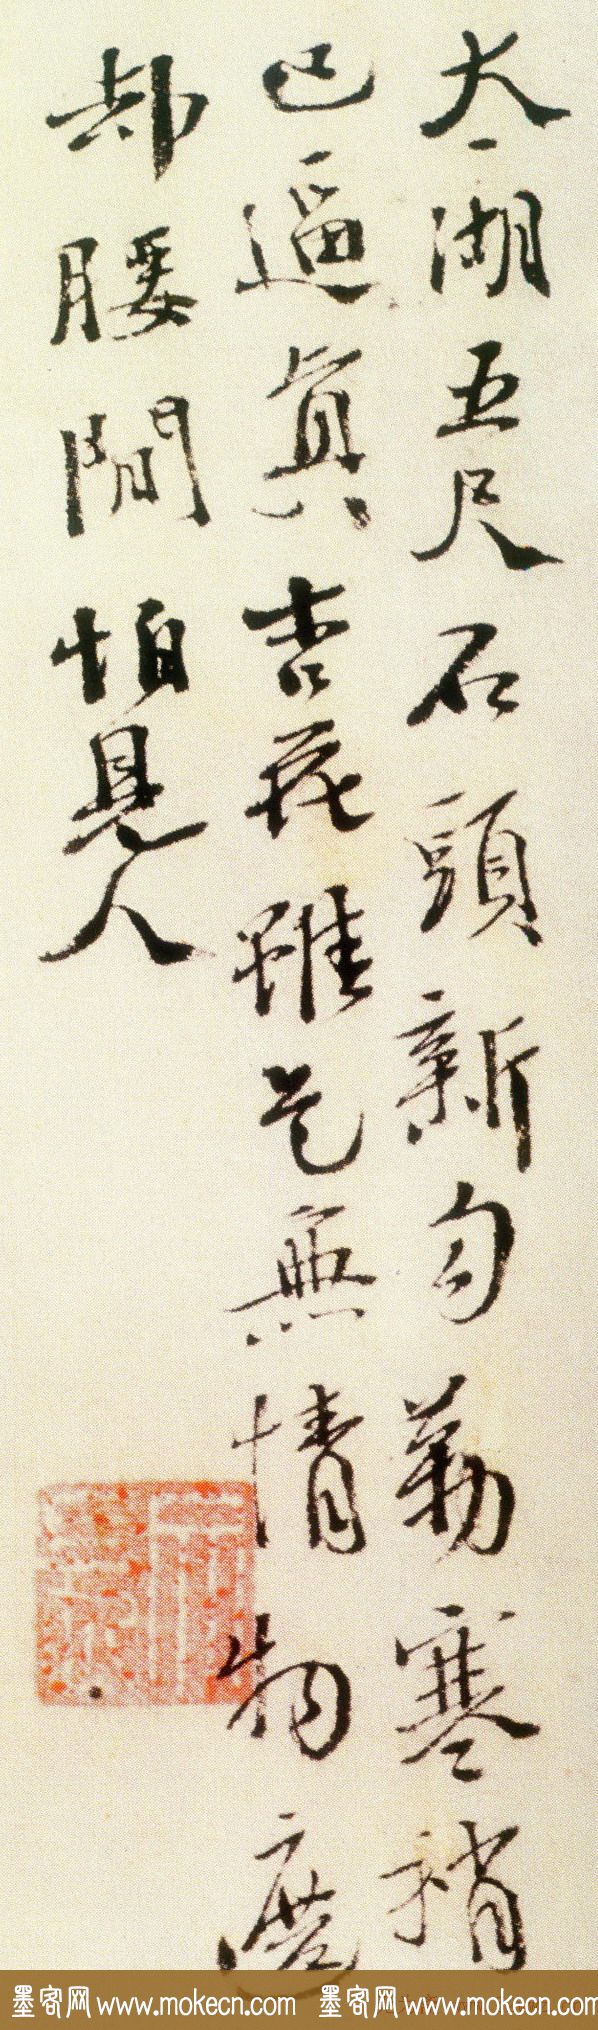 太湖五尺石頭新勾勒寒梢
已逼真雖是無情物
却腰間怕見人
墨客网 www.mokecn.com 墨客网 www.mokecn.com